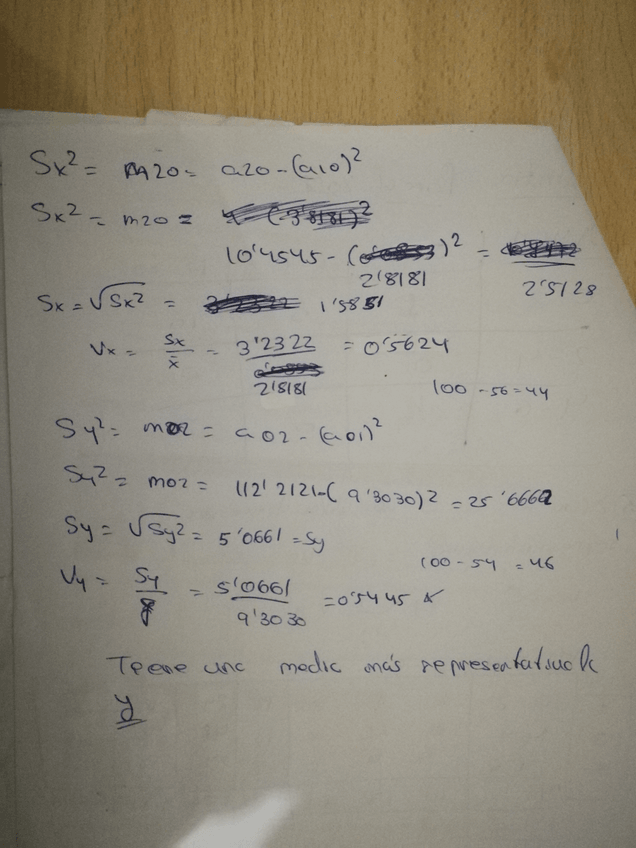 Sx² = m20 = a20 - (a10)²
Sx² = m20 =
10'4545 - ( )² =
2'8181 2'5128
Sx = √Sx² = 1'5851
Vx = Sx/x̄ = 3'2322 = 0'5624
2'8181
100 - 56 = 44
Sy² = m02 = a02 - (a01)²
Sy² = m02 = 112'2121 - (9'3030)² = 25'6662
Sy = √Sy² = 5'0661 = Sy
100 - 54 = 46
Vy = Sy/ȳ = 5'0661/9'3030 = 0'5445
Tiene una media más representativa la
y